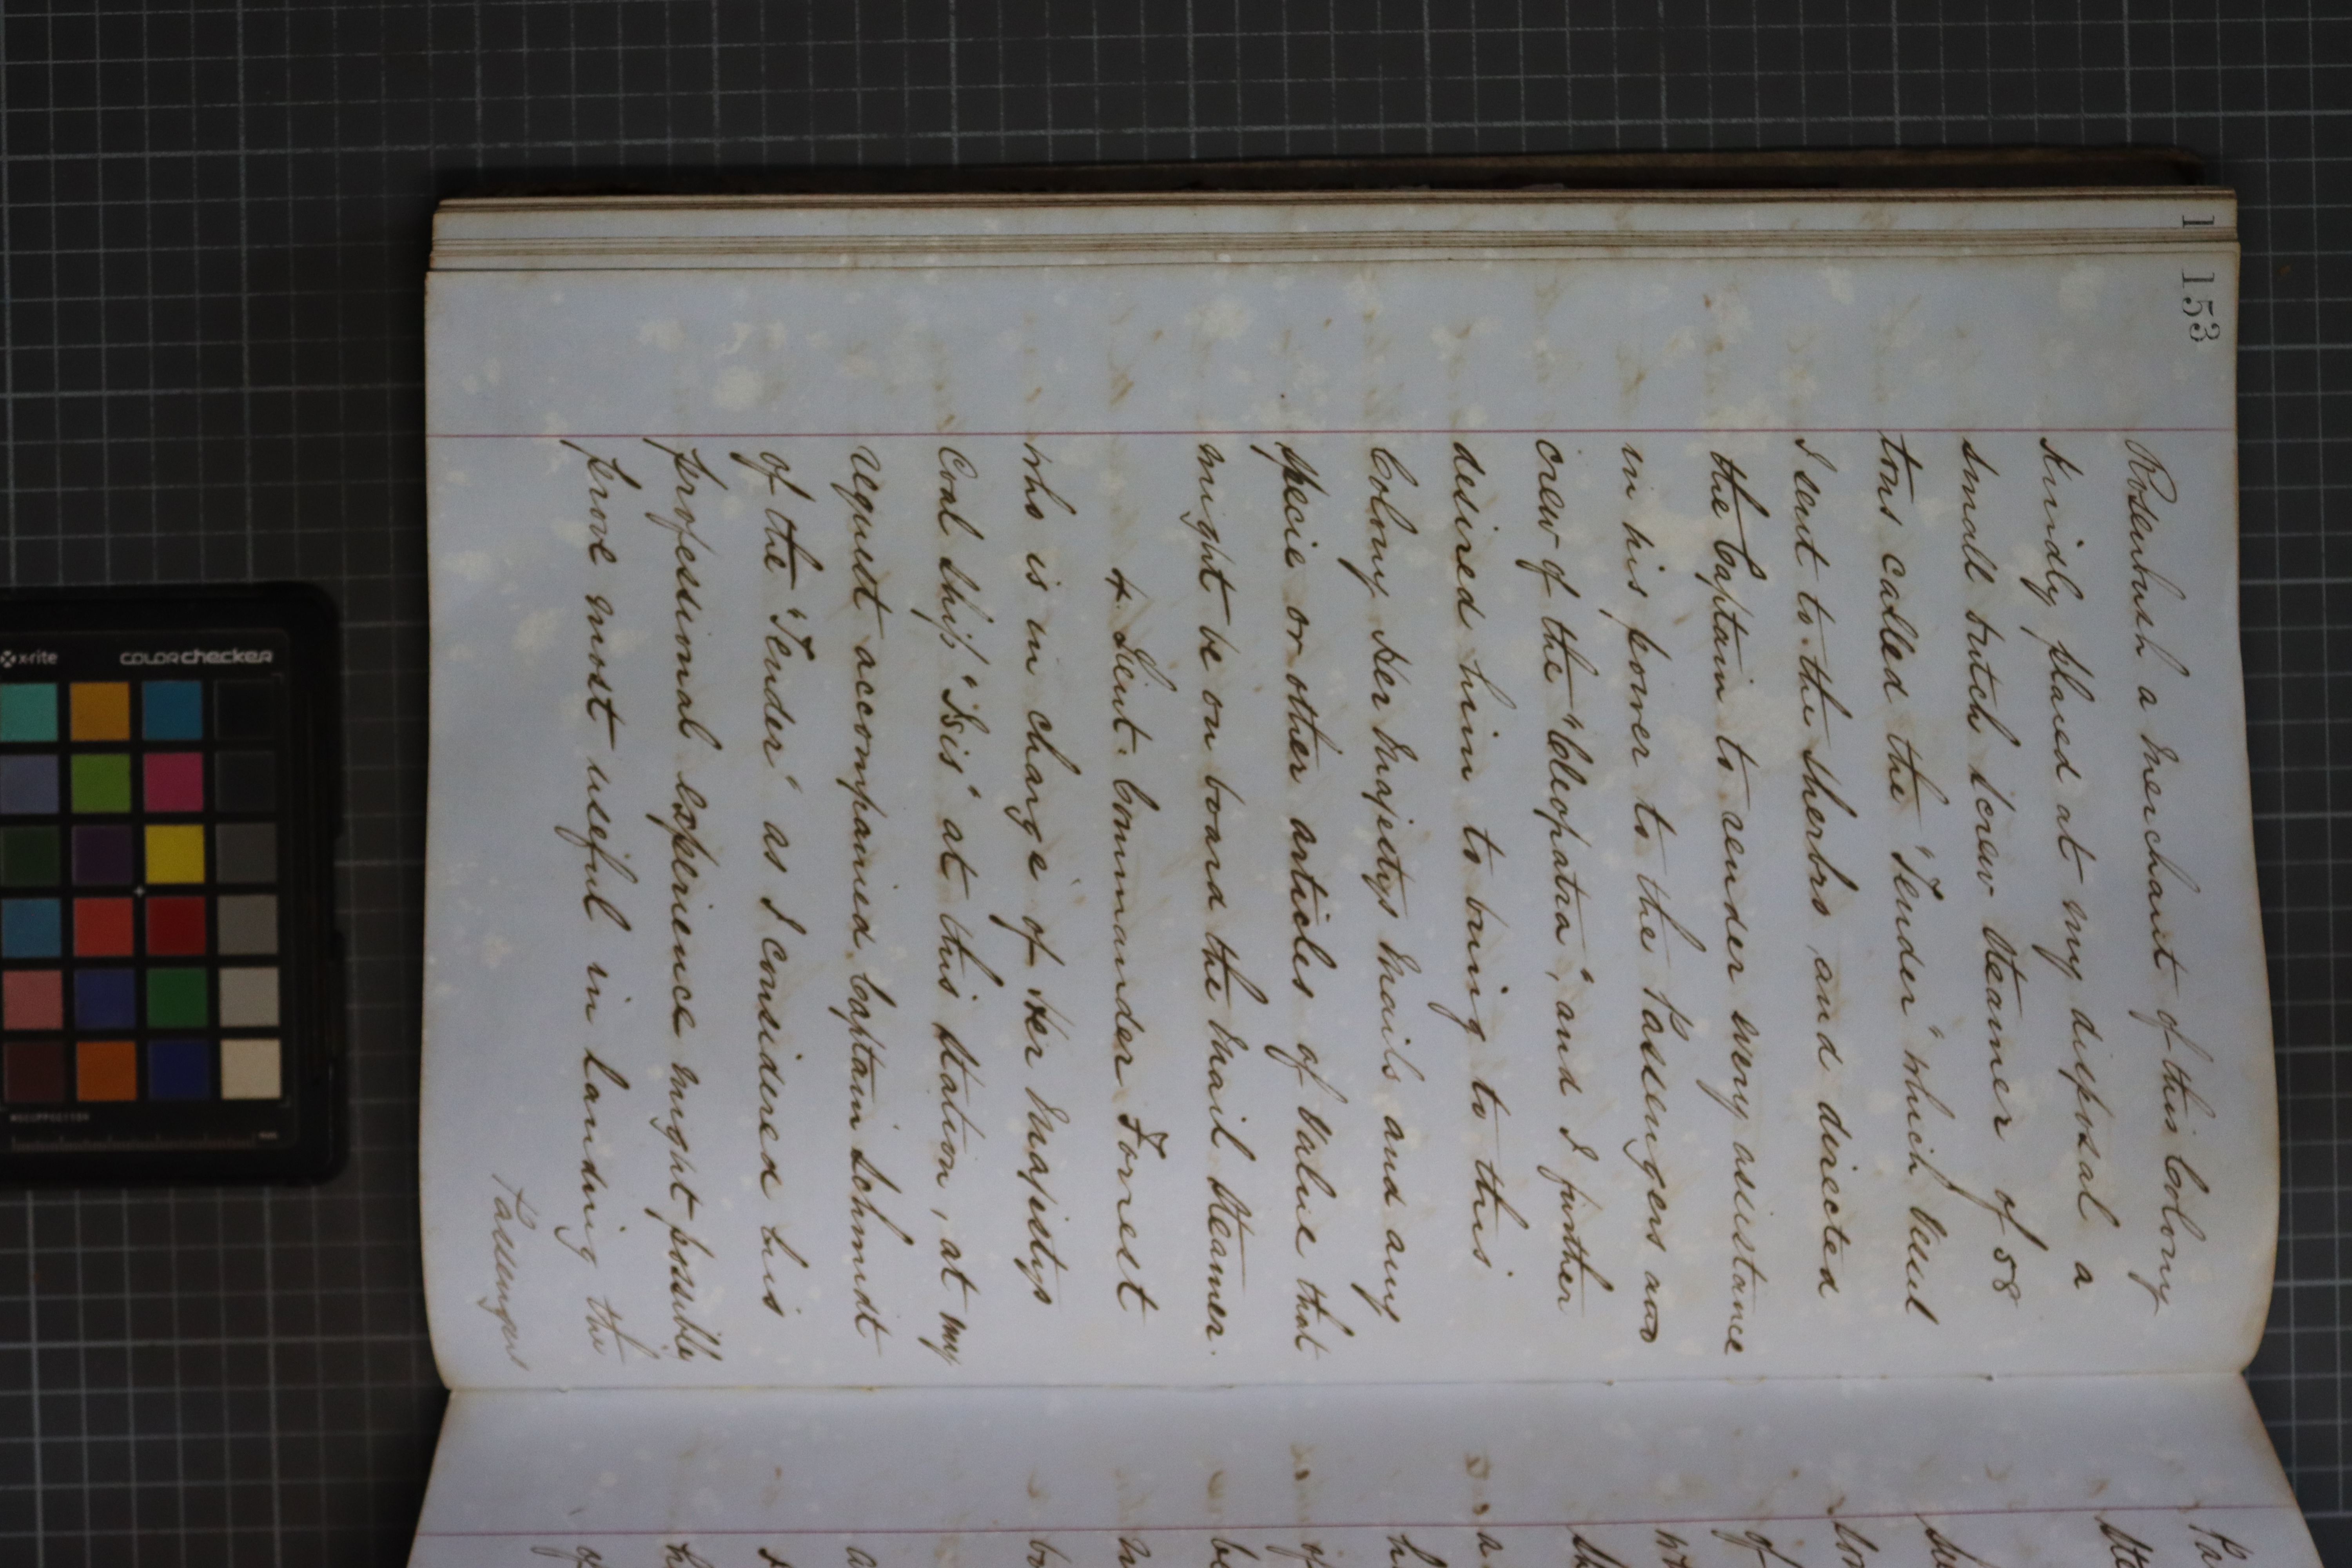 153
Rosenbush a Merchant of this Colony
kindly placed at my disposal a
small dutch Screw Steamer of 58
tons called the "Tender" which Vessel
I sent to the Sherbro, and directed
the Captain to render every assistance
in his power to the Passengers and
crew of the "Cleopatra", and I further
desired him to bring to this
Colony Her Majestys Mails and any
specie or other articles of Value that
might be on board the Mail Steamer.
4. Lieut. Commander Forrest
who is in charge of Her Majestys
Coal Ship "Isis" at this Station, at my
request accompanied Captain Schmidt
of the "Tender" as I considered his
professional experience might possibly
prove most useful in landing the
Passengers
x-rite
colorchecker